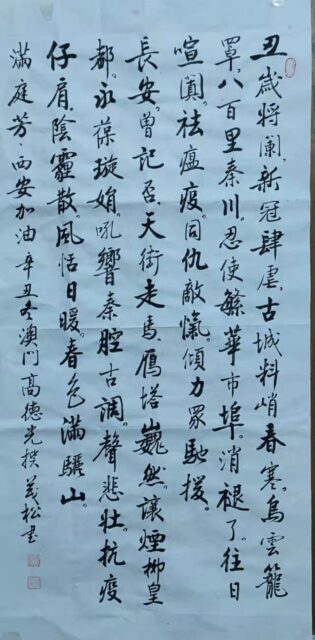 丑歲将阑。新冠肆虐。古城料峭春寒。烏雲籠
罩。八百里秦川。忍使緐華市埠。消褪了。往日
喧闐。祛瘟疫同仇敵愾。傾力眾馳援。
長安。曾記否。天街走馬。雁塔巍然。讓煙柳皇
都。永葆璇娟。吼響秦腔古調。聲悲壯。抗疫
仔肩。陰霾散。風恬日暖。春色滿驪山。
滿庭芳·西安加油 辛丑冬澳门高德光撰 松书